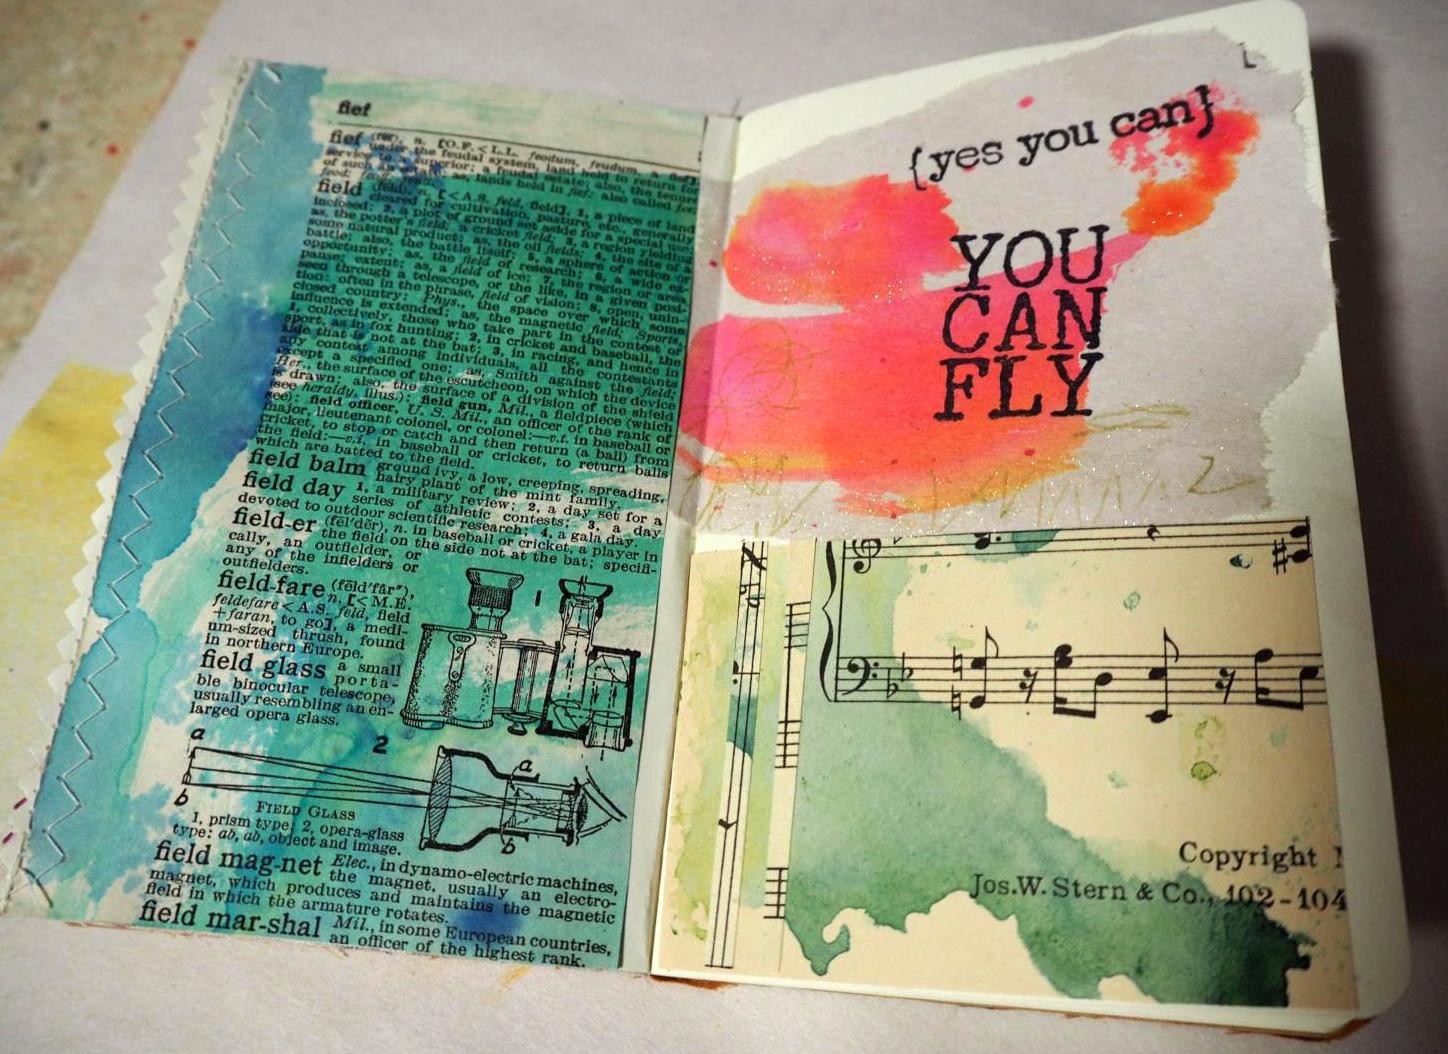 fief
fief (fēf), n. [O.F. < L.L. feodum, feudum, a fief],
under the feudal system, land held in return for
service to a superior; a feudal estate; also, the tenure
of such an estate, as lands held in fief: also called
field (fēld), n. [< A.S. feld, field], 1, a piece of land
cleared for cultivation, pasture, etc., generally
inclosed; 2, a plot of ground set aside for a special use;
as, the potter's field; a cricket field; 3, a region yielding
some natural product; as, the oil fields; 4, the site of a
battle; also, the battle itself; 5, a sphere of action or
opportunity; as, the field of research; 6, a wide ex-
panse; extent; as, a field of ice; 7, the region or area
seen through a telescope, or the like, in a given posi-
tion: often in the phrase, field of vision; 8, open, unin-
closed country: Phys., the space over which some
influence is extended; as, the magnetic field. Sports,
1, collectively, those who take part in the contest or
sport, as in fox hunting; 2, in cricket and baseball, the
side that is not at the bat; 3, in racing, and hence in
any contest among individuals, all the contestants
except a specified one; as, Smith against the field;
Her., the surface of the escutcheon, on which the device
is drawn: also, the surface of a division of the shield
(see heraldry, illus.): field gun, Mil., a fieldpiece (which
see): field officer, U. S. Mil., an officer of the rank of
major, lieutenant colonel, or colonel:—v.t. in baseball or
cricket, to stop or catch and then return (a ball) from
the field:—v.i. in baseball or cricket, to return balls
which are batted to the field.
field balm ground ivy, a low, creeping, spreading,
hairy plant of the mint family.
field day 1, a military review; 2, a day set for a
series of athletic contests; 3, a day
devoted to outdoor scientific research; 4, a gala day.
field-er (fēl'dẽr), n. in baseball or cricket, a player in
the field on the side not at the bat; specifi-
cally, an outfielder, or
any of the infielders or
outfielders.
field-fare (fēld'fâr"),
n. [< M.E.
feldefare < A.S. feld, field
+ faran, to go], a medi-
um-sized thrush, found
in northern Europe.
field glass a small
porta-
ble binocular telescope,
usually resembling an en-
larged opera glass.
1
2
a
b
a
b
FIELD GLASS
1, prism type; 2, opera-glass
type: ab, ab, object and image.
field mag-net Elec., in dynamo-electric machines,
the magnet, usually an electro-
magnet, which produces and maintains the magnetic
field in which the armature rotates.
field mar-shal Mil., in some European countries,
an officer of the highest rank.
{yes you can}
YOU
CAN
FLY
Copyright
Jos.W. Stern & Co., 102-104